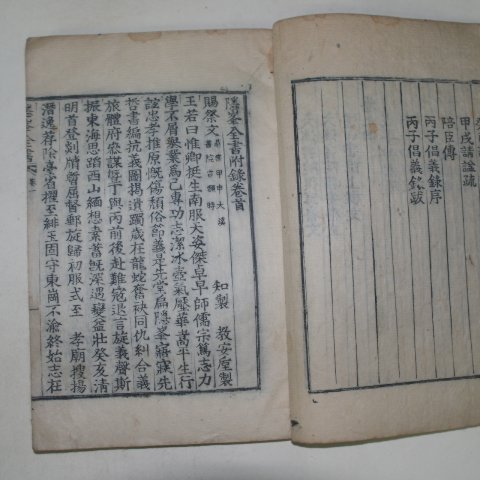 甲戌請諡疏
陪臣傳
丙子倡義錄序
丙子倡義錄跋
隱峯全書附錄卷首
賜祭文
知製 教安壓製
王若曰惟卿挺生南服天姿傑卓早師儒宗篤志力
學不屑擧業爲己專功志潔冰壺氣壓華嵩平生行
誼忠孝推原慨傷頹俗節義是先堂扁隱峯寤寐先
哲書編抗義圖揭遺躅歲在龍蛇奮袂同仇糾合義
旅體府參謀暨丁與丙前後赴難寇退言旋義聲斯
振東海思蹈西山緬想素蓄旣深遇變益壯癸亥清
明首登剡牘暫屈督郵旋歸初服式至 孝廟搜揚
潛逸荐除臺省擢至緋玉固守東崗不渝終始志在